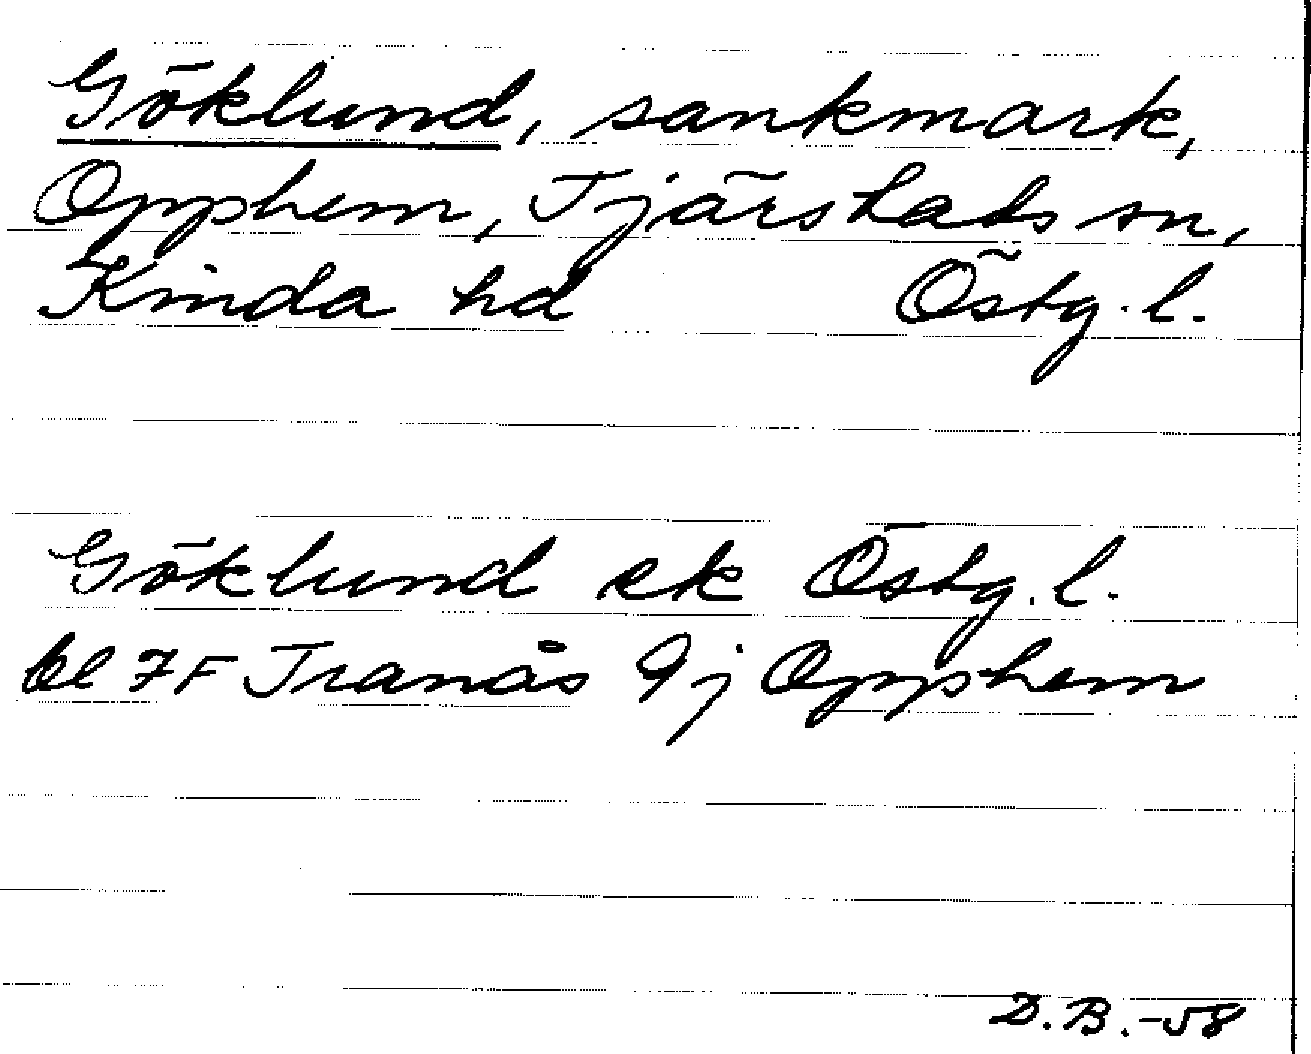 Göklund, sankmark,
Opphem, Tjärstads sn,
Kinda hd Östg. l.
Göklund ek Östg. l.
bl 7F Tranås 9j Opphem
D. B. -58